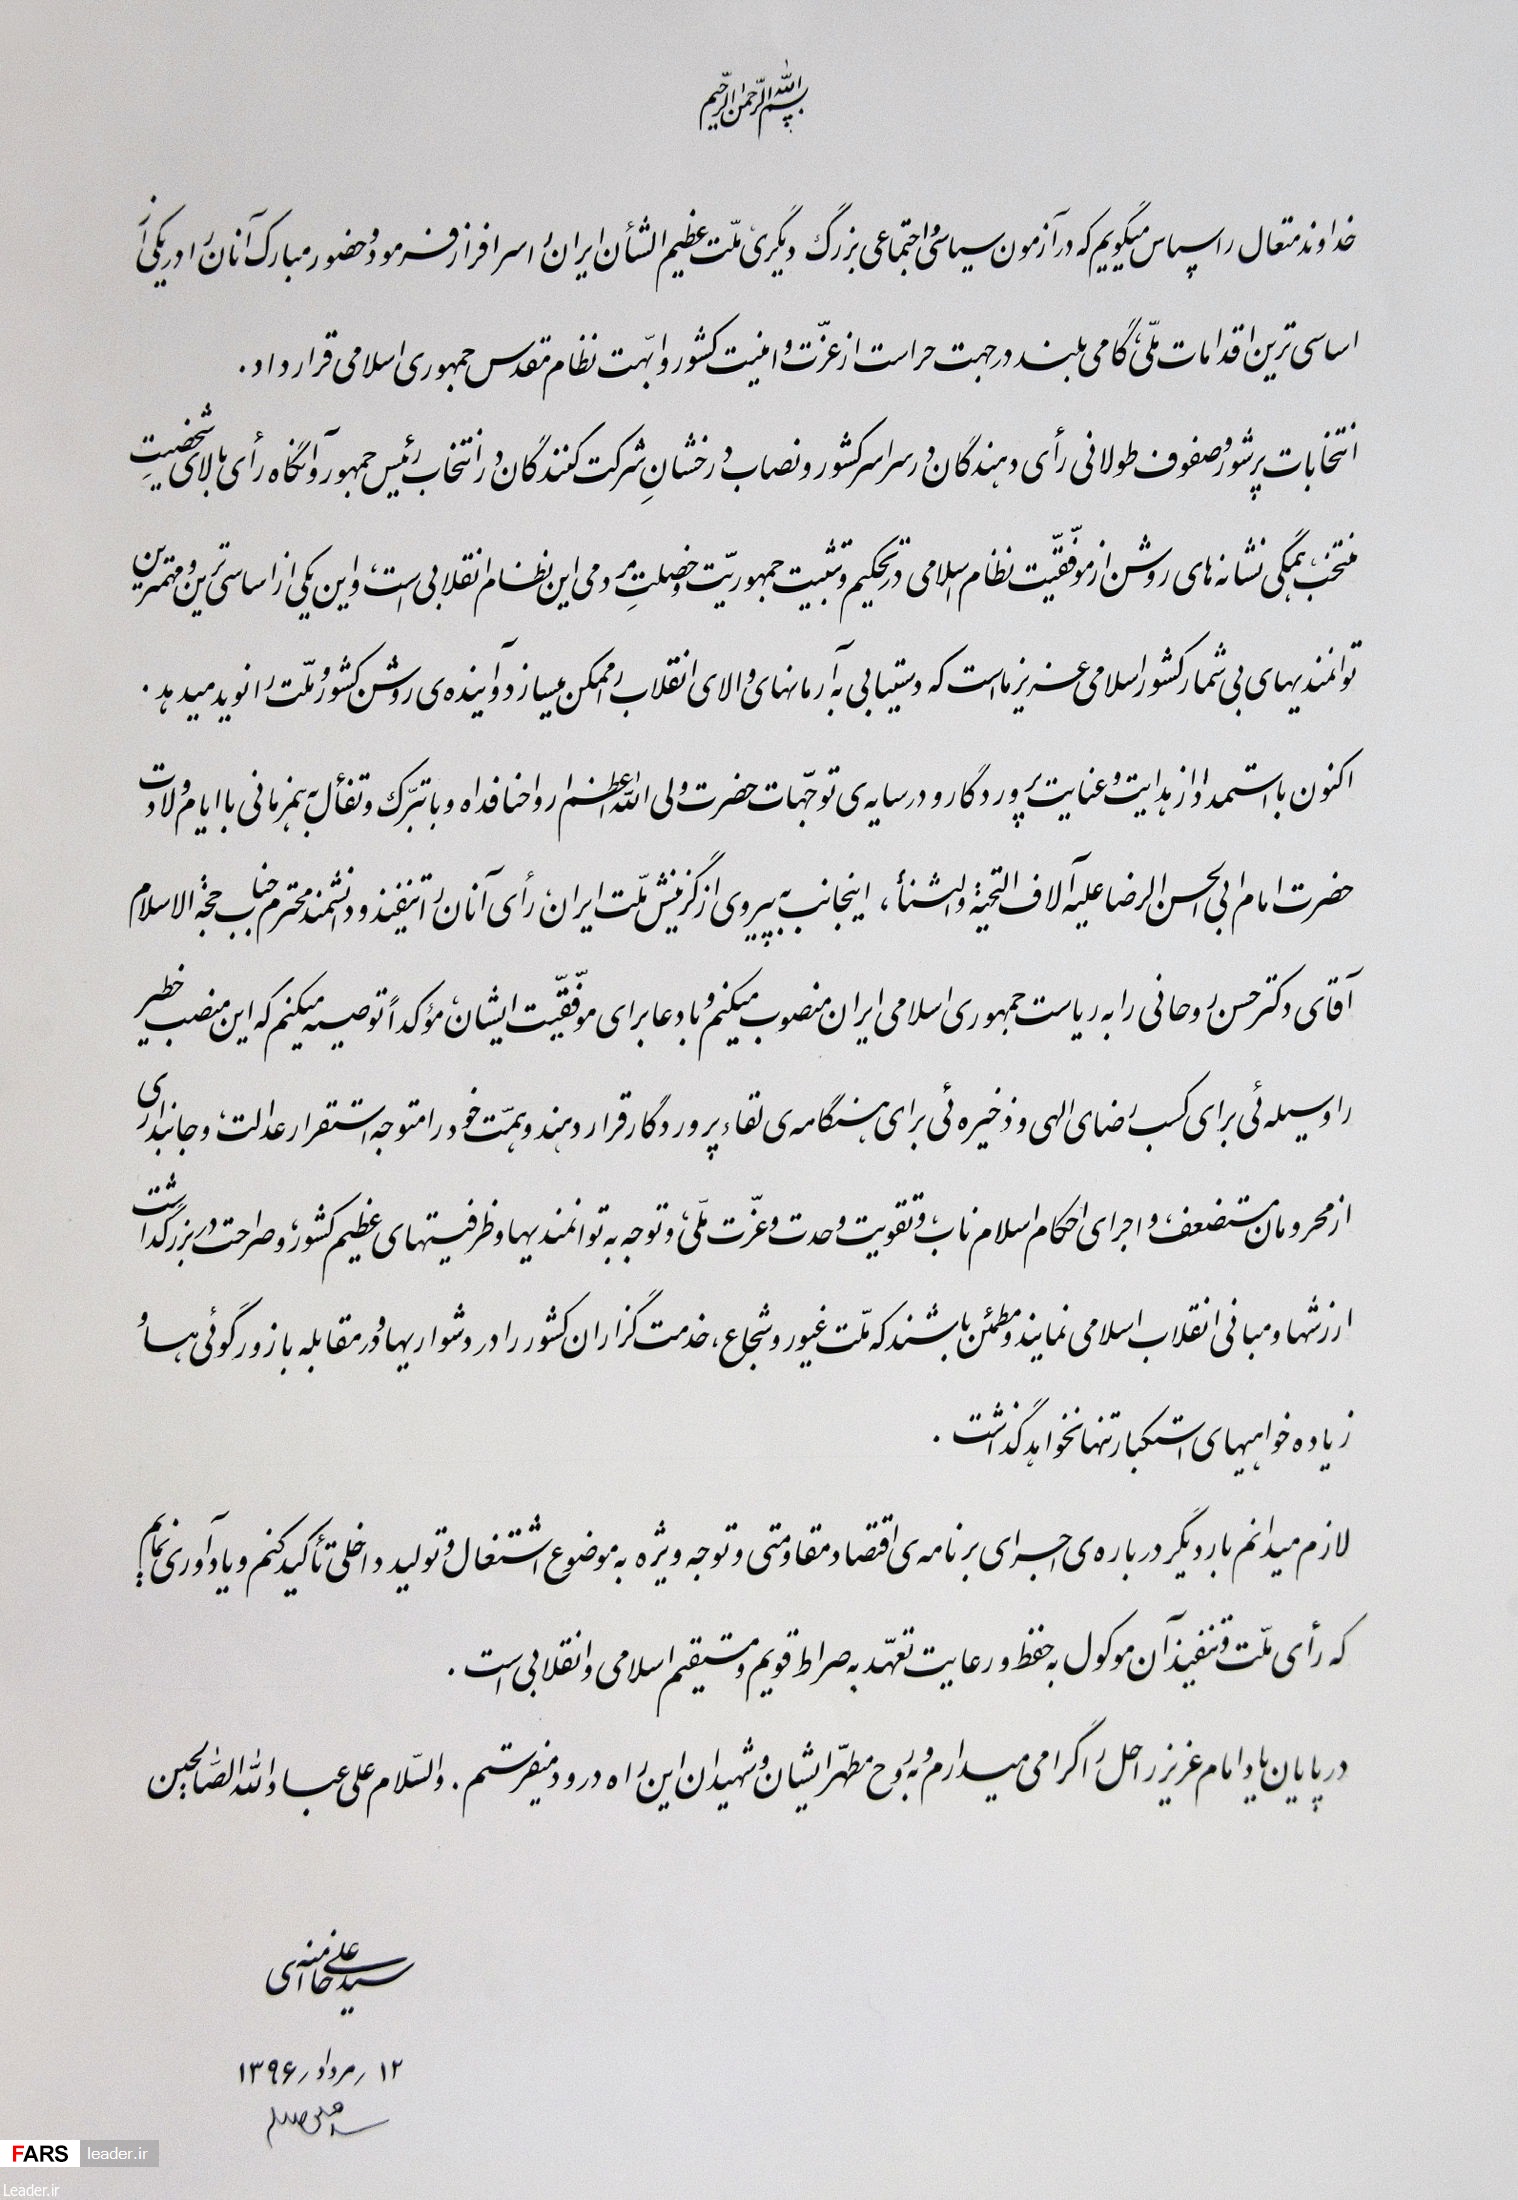 بسم‌الله‌الرّحمن‌الرّحیم
خداوند متعال را سپاس میگویم که در آزمون سیاسی و اجتماعی بزرگ دیگری، ملّت عظیم‌الشأن ایران را سرافراز فرمود و حضور مبارک آنان را در یکی از
اساسی‌ترین اقدامات ملّی، گامی بلند در جهت حراست از عزّت و امنیت کشور و ابّهت نظام مقدس جمهوری اسلامی قرار داد.
انتخابات پرشور و صفوف طولانی رأی دهندگان در سراسر کشور و نصاب درخشانِ شرکت کنندگان در انتخاب رئیس جمهور و آنگاه رأی بالای شخصیتِ
منتخب، همگی نشانه‌های روشن از موفّقیّت نظام اسلامی در تحکیم و تثبیت جمهوریّت و خصلتِ مردمی این نظام انقلابی است، و این یکی از اساسی‌ترین و مهمترین
توانمندیهای بی‌شمار کشور اسلامی عزیز ما است که دستیابی به آرمانهای والای انقلاب را ممکن میسازد و آینده‌ی روشن کشور و ملّت را نوید میدهد.
اکنون با استمداد از هدایت و عنایت پروردگار و در سایه‌ی توجّهات حضرت ولی الله‌الاعظم ارواحنا فداه و با تبرّک و تفأل به همزمانی با ایام ولادت
حضرت امام ابی‌الحسن الرضا علیه آلاف التحیّة والثناء، اینجانب به پیروی از گزینش ملّت ایران، رأی آنان را تنفیذ و دانشمند محترم جناب حجّة الاسلام
آقای دکتر حسن روحانی را به ریاست جمهوری اسلامی ایران منصوب میکنم و با دعا برای موفّقیّت ایشان، مؤکداً توصیه میکنم که این منصب خطیر
را وسیله‌ئی برای کسب رضای الهی و ذخیره‌ئی برای هنگامه‌ی لقاء پروردگار قرار دهند و همّت خود را متوجه استقرار عدالت، و جانبداری
از محرومان مستضعف، و اجرای احکام اسلام ناب، و تقویت وحدت و عزّت ملّی، و توجه به توانمندیها و ظرفیتهای عظیم کشور، و صراحت در بزرگداشت
ارزشها و مبانی انقلاب اسلامی نمایند و مطمئن باشند که ملّت غیور و شجاع، خدمت گزاران کشور را در دشواریها و در مقابله با زورگوئی‌ها و
زیاده خواهیهای استکبار تنها نخواهد گذاشت.
لازم میدانم بار دیگر درباره‌ی اجرای برنامه‌ی اقتصاد مقاومتی و توجه ویژه به موضوع اشتغال و تولید داخلی تأکید کنم و یادآوری نمایم
که رأی ملّت و تنفیذ آن موکول به حفظ و رعایت تعهّد به صراط قویم و مستقیم اسلامی و انقلابی است.
در پایان یاد امام عزیز راحل را گرامی میدارم و به روح مطهّر ایشان و شهیدان این راه درود میفرستم. والسّلام علی عباد الله الصّالحین
سیّدعلی خامنه‌ای
۱۲/مرداد/۱۳۹۶
FARS leader.ir
Leader.ir